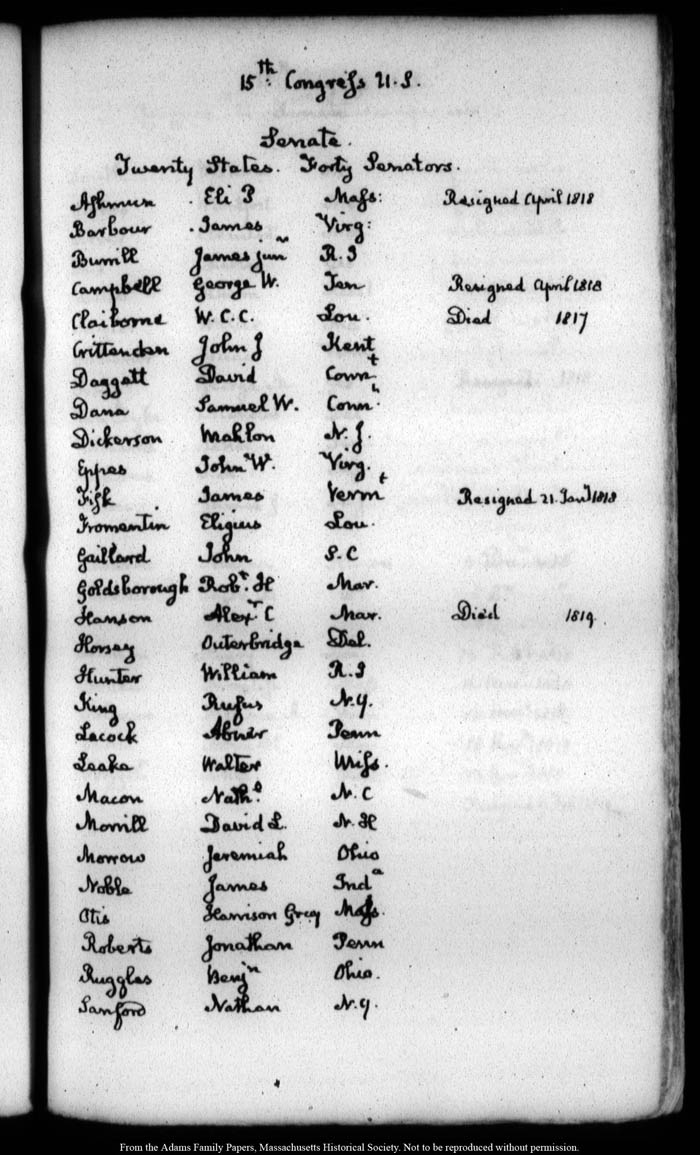 15th Congress U.S.
Senate.
Twenty States. Forty Senators.
Ashmun Eli P Mass: Resigned April 1818
Barbour James Virg:
Burrill James junr R.I
Campbell George W. Ten Resigned April 1818
Claiborne W.C.C. Lou. Died 1817
Crittenden John J Kent
Daggett David Connt
Dana Samuel W. Connt
Dickerson Mahlon N.J.
Eppes John W. Virg.
Fisk James Vermt Resigned 21. Jany 1818
Fromentin Eligius Lou.
Gaillard John S.C
Goldsborough Robt. H Mar.
Hanson Alexr C Mar. Died 1819
Horsey Outerbridge Del.
Hunter William R.I
King Rufus N.Y.
Lacock Abner Penn
Leake Walter Miss.
Macon Nathl. N.C
Morrill David L. N.H
Morrow Jeremiah Ohio
Noble James Inda
Otis Harrison Grey Mass.
Roberts Jonathan Penn
Ruggles Benjn Ohio.
Sanford Nathan N.Y.
From the Adams Family Papers, Massachusetts Historical Society. Not to be reproduced without permission.